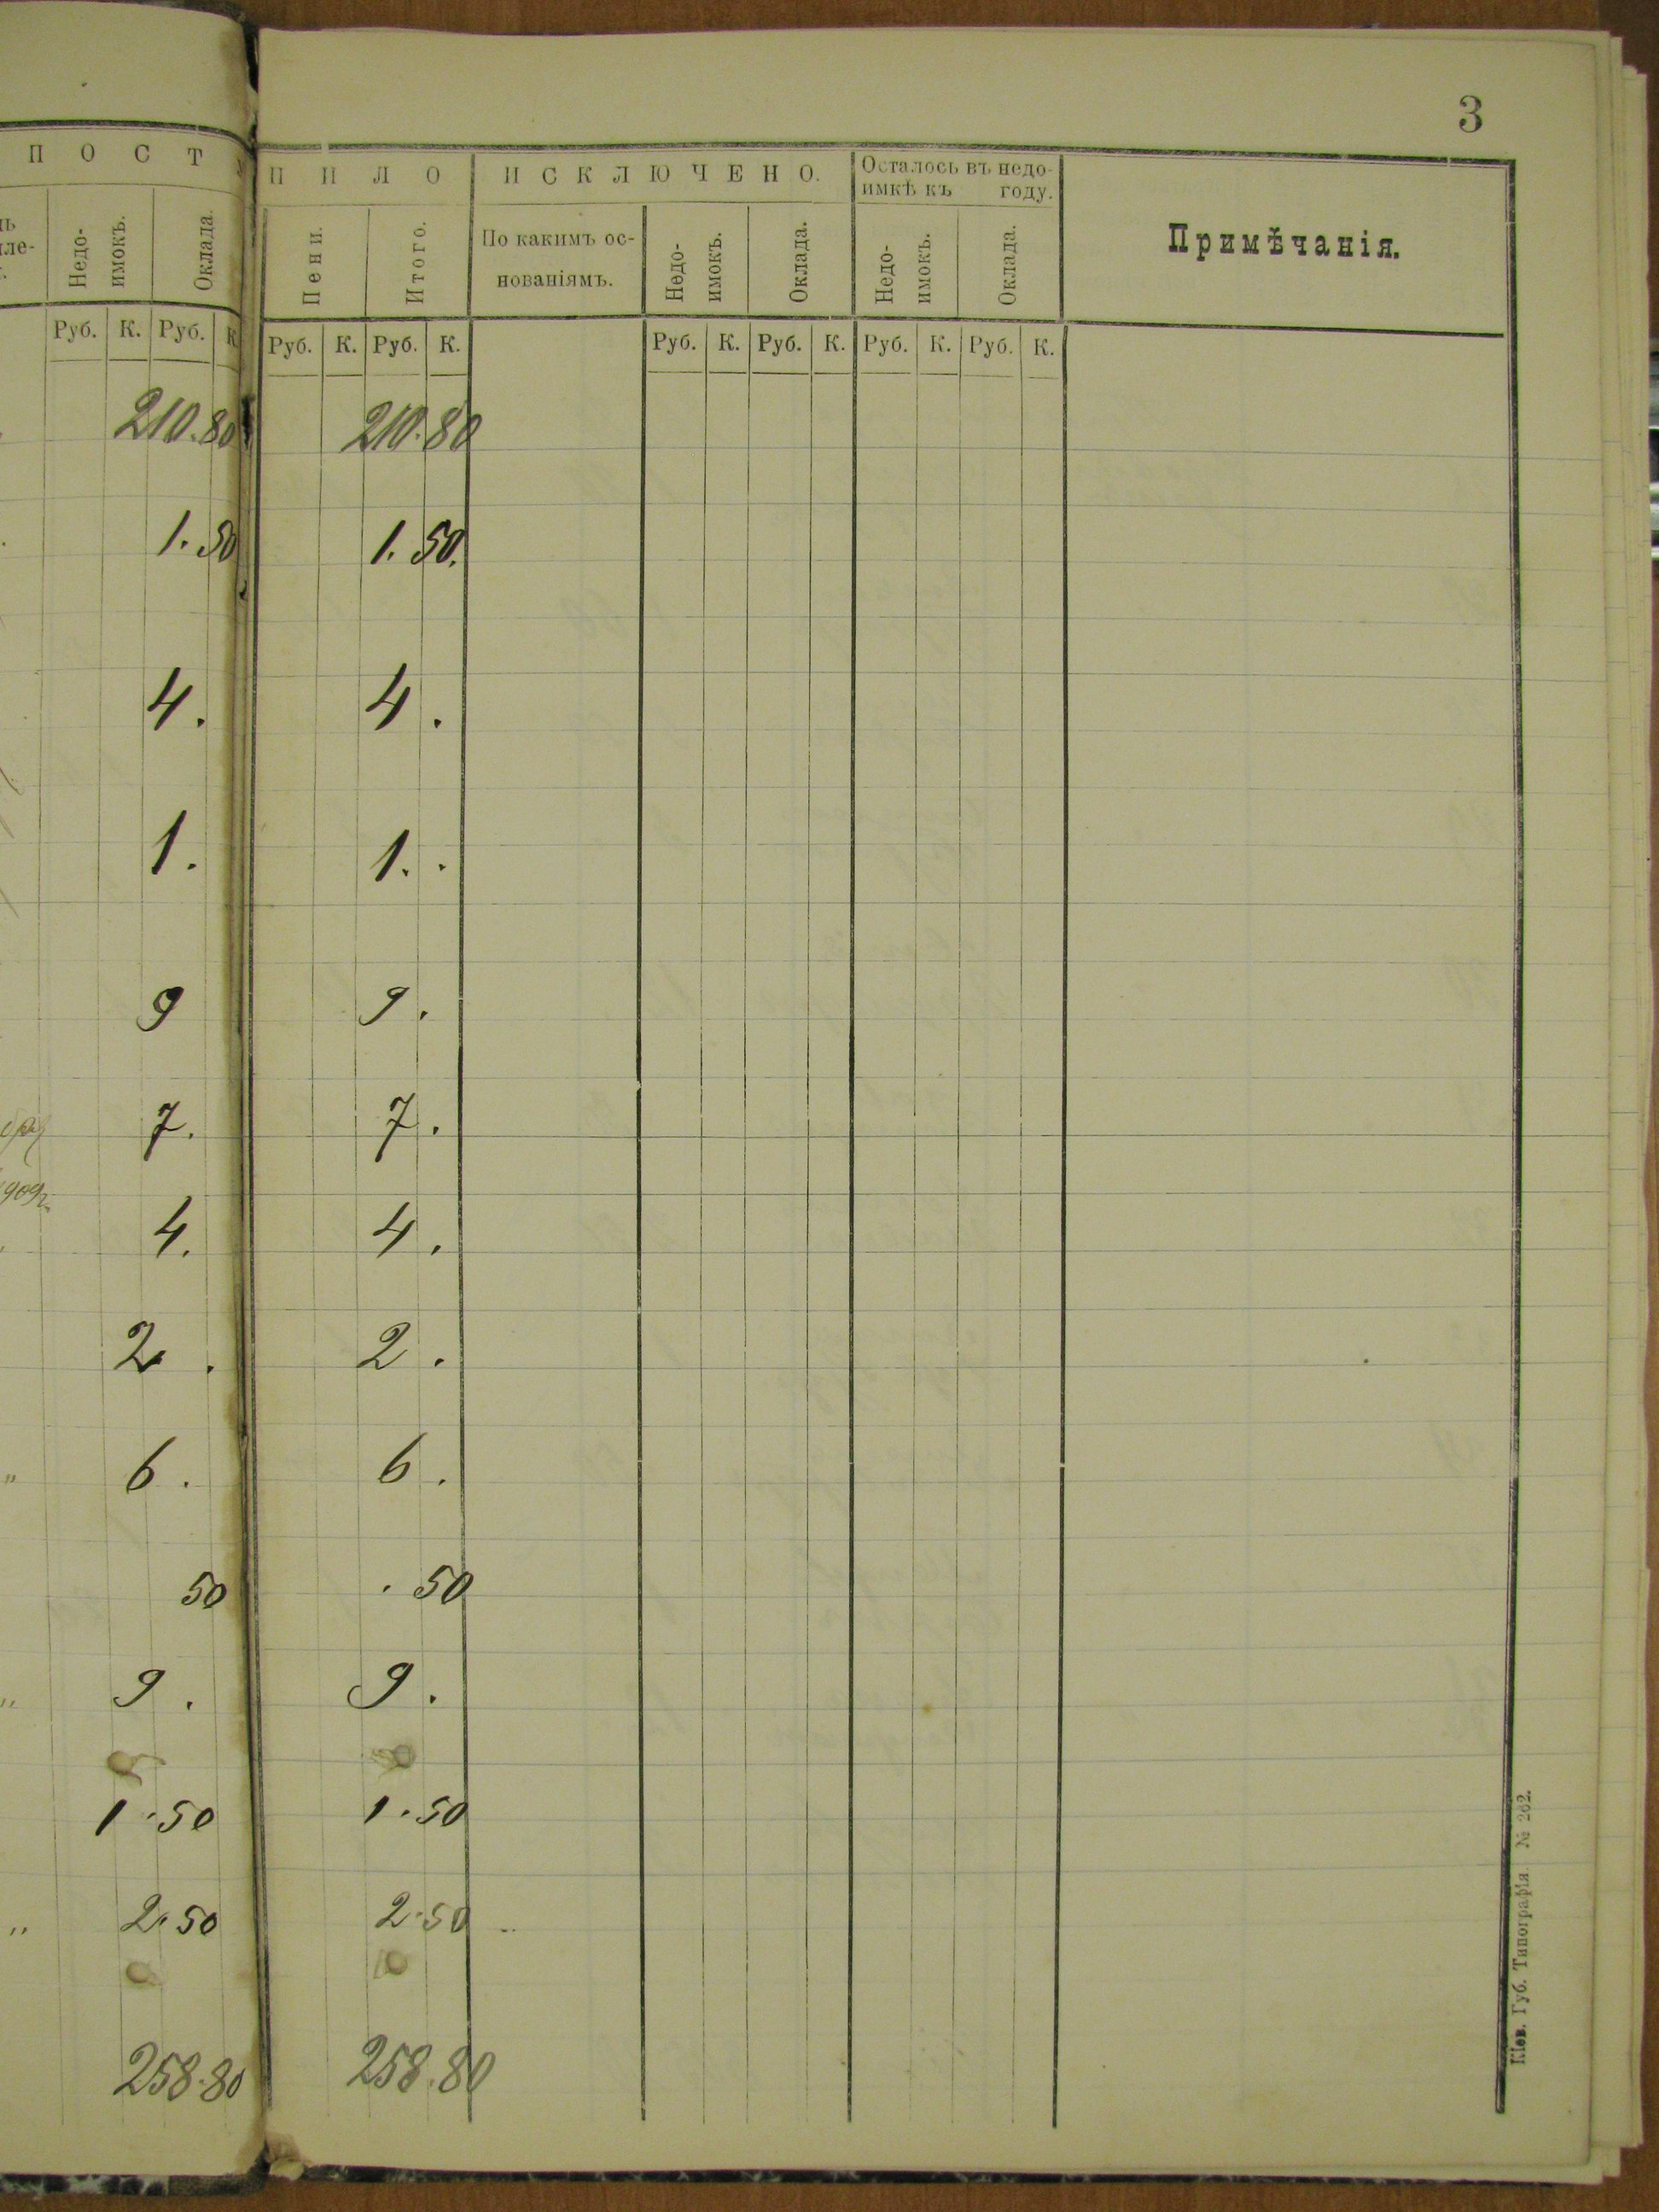 3
П О С Т У П И Л О
И С К Л Ю Ч Е Н О.
Осталось въ недо-
имкѣ къ году.
Примѣчанія.
Недо-
имокъ.
Оклада.
Пени.
Итого.
По какимъ ос-
нованіямъ.
Недо-
имокъ.
Оклада.
Недо-
имокъ.
Оклада.
Руб. К. Руб. К. Руб. К. Руб. К. Руб. К. Руб. К. Руб. К. Руб. К.
210.80 210.80
1.50 1.50.
4. 4.
1. 1..
9 9.
7. 7.
909г. 4. 4.
2. 2.
" 6. 6.
50 .50
" 9. 9.
1.50 1.50
" 2.50 2.50
258.80 258.80
Кіев. Губ. Типографія. № 262.